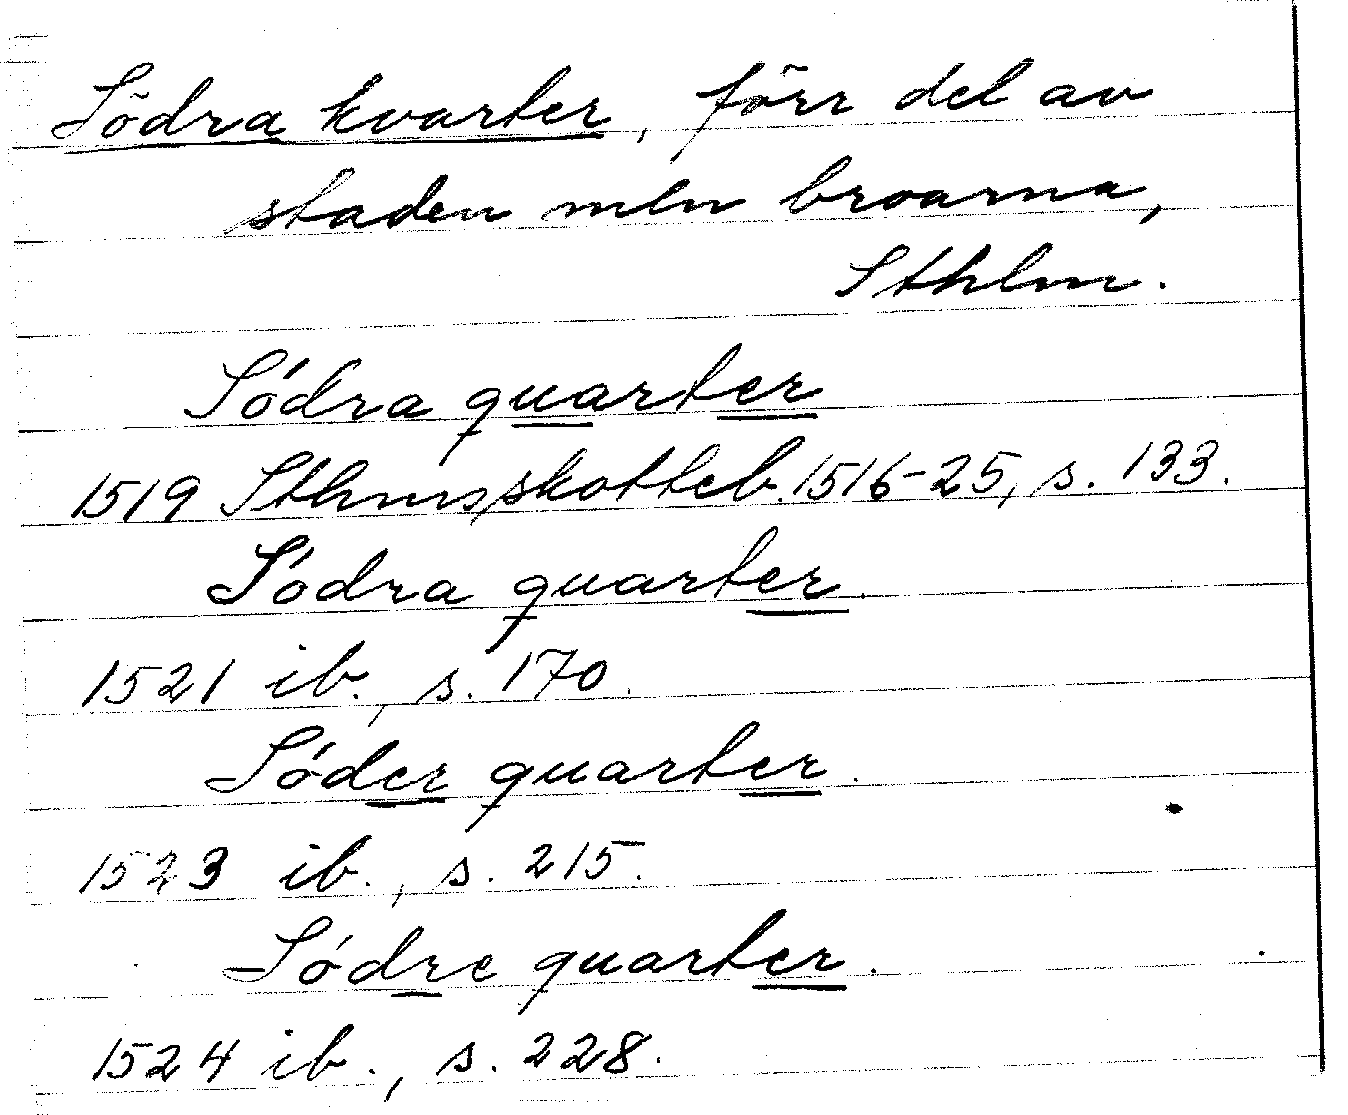 Södra kvarter, förr del av
staden mln broarna,
Sthlm.
Södra quarter
1519 Sthmsskotteb. 1516-25, s. 133.
Södra quarter.
1521 ib., s. 170.
Söder quarter.
1523 ib., s. 215.
Södre quarter.
1524 ib., s. 228.